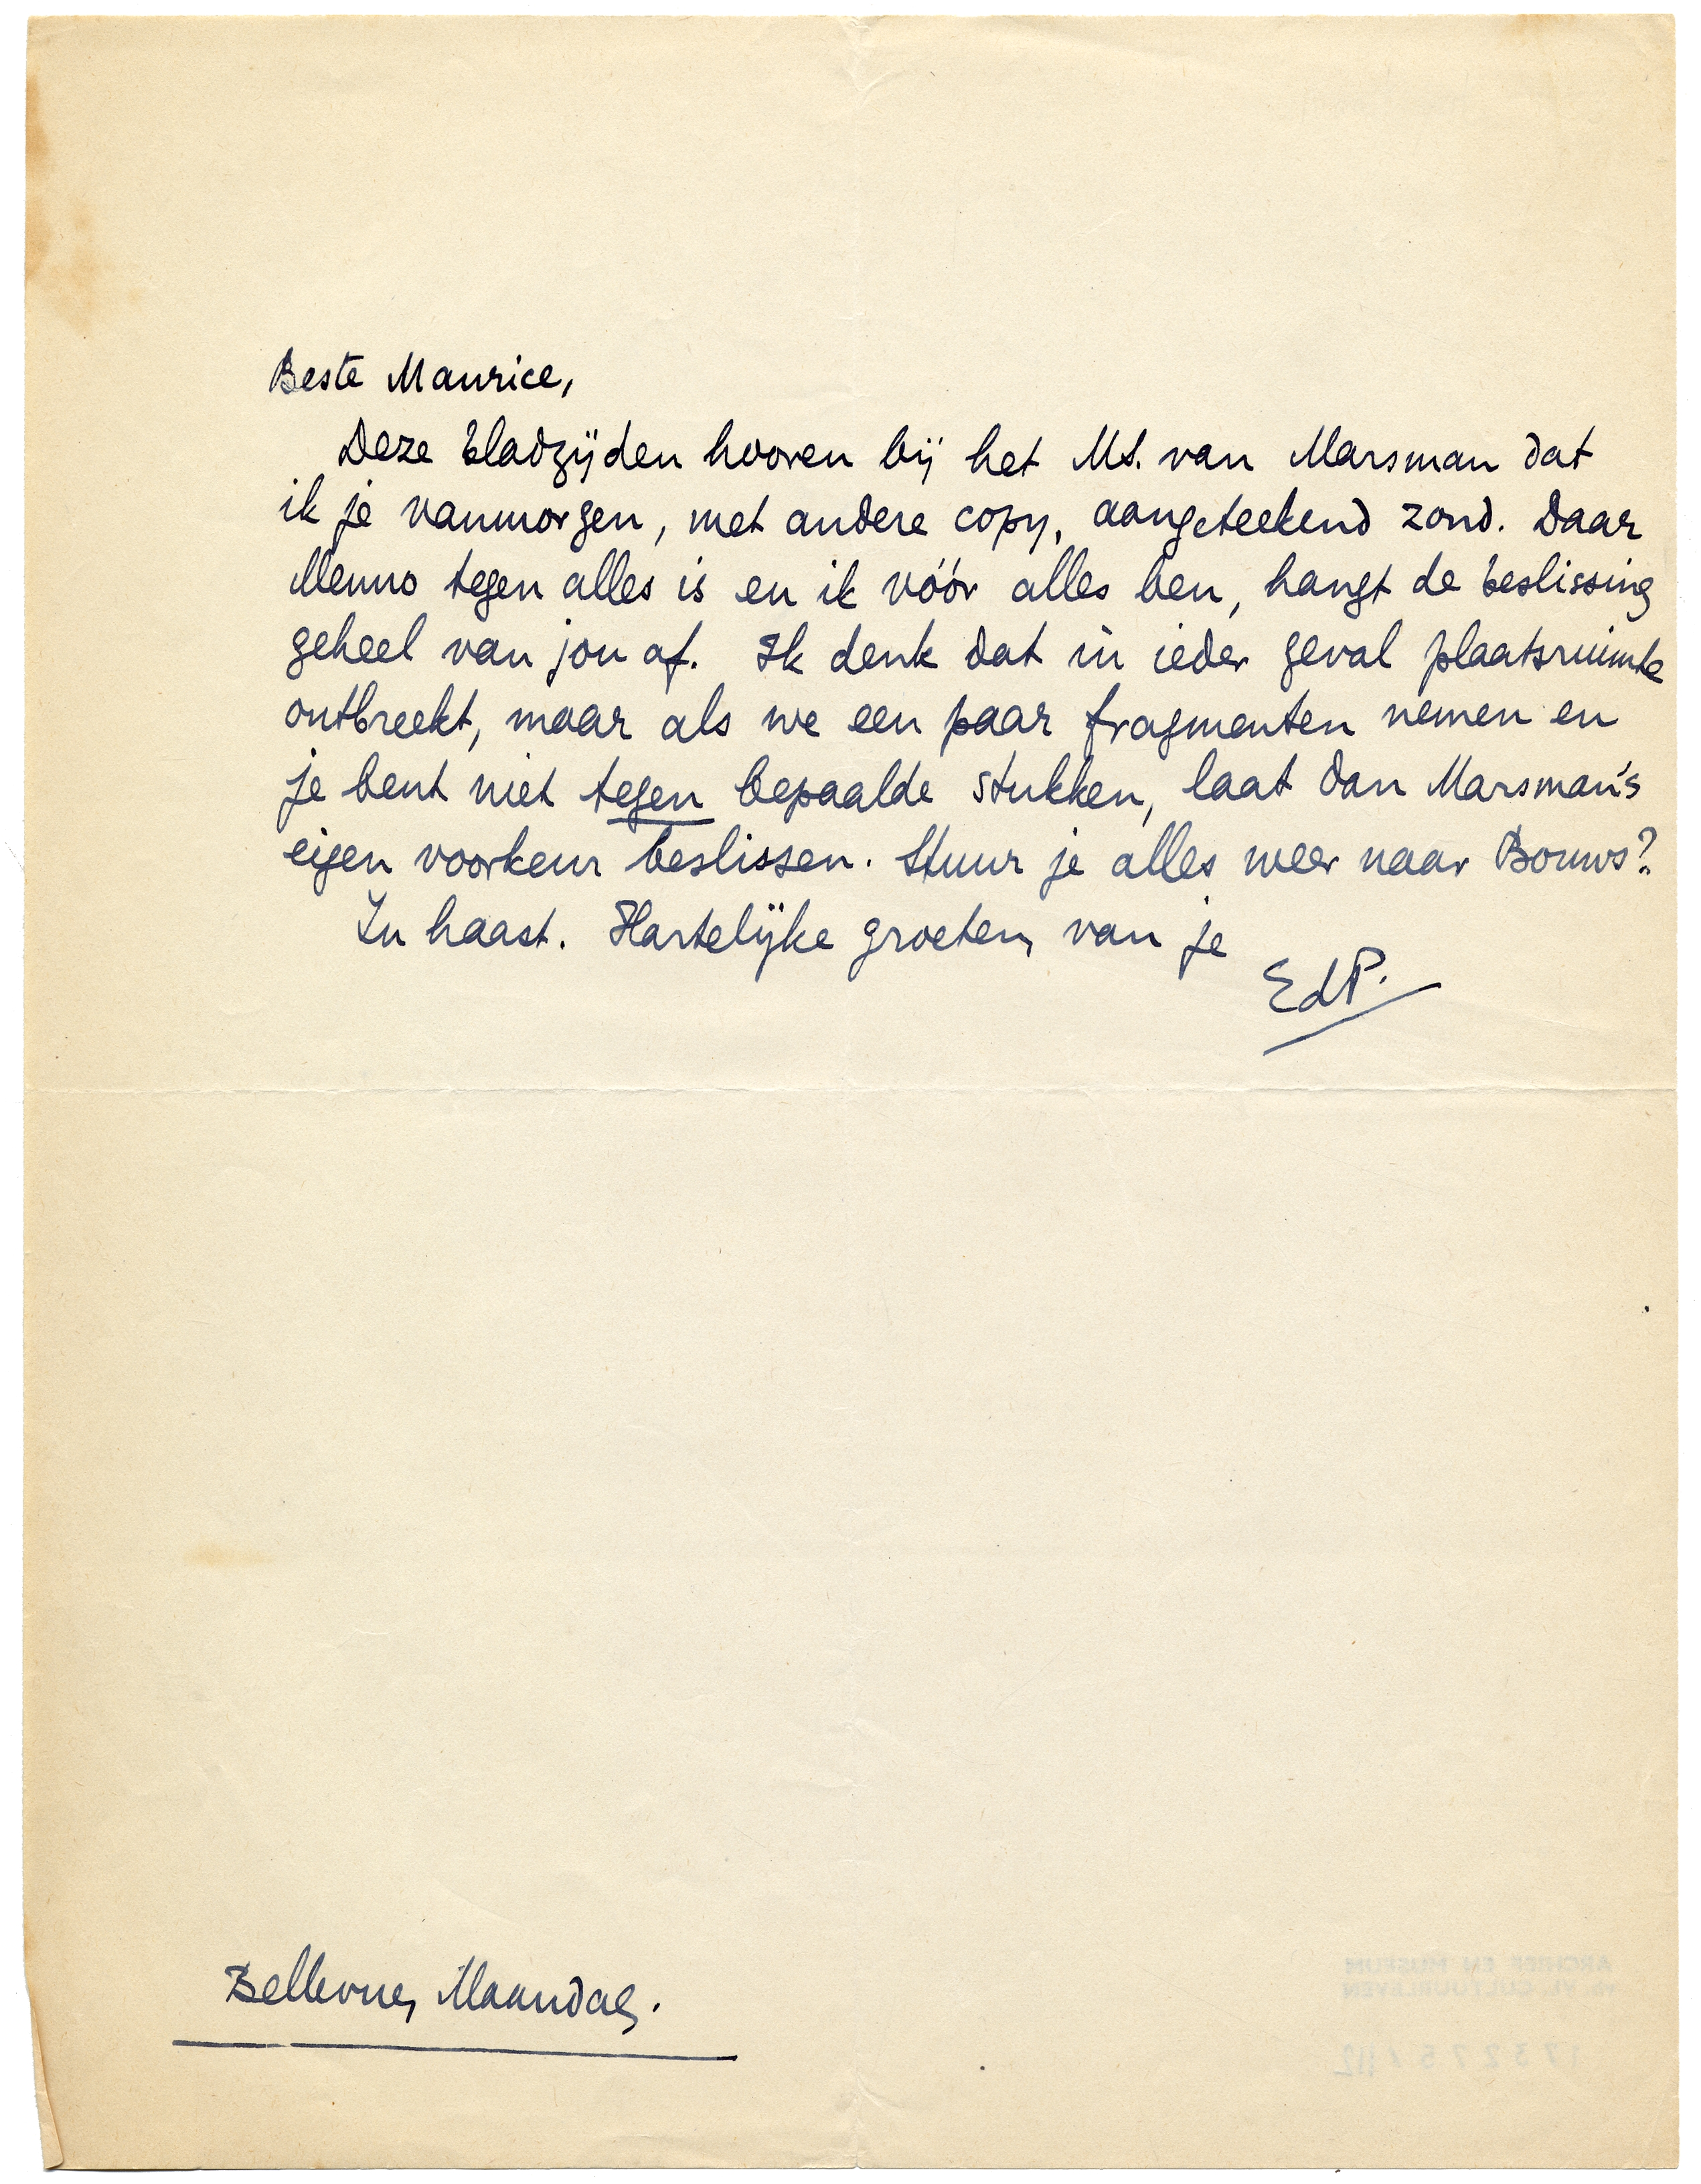 Beste Maurice,
Deze bladzijden hooren bij het Ms. van Marsman dat
ik je vanmorgen, met andere copy, aangeteekend zond. Daar
Menno tegen alles is en ik vóór alles ben, hangt de beslissing
geheel van jou af. Ik denk dat in ieder geval plaatsruimte
ontbreekt, maar als we een paar fragmenten nemen en
je bent niet tegen bepaalde stukken, laat dan Marsman's
eigen voorkeur beslissen. Stuur je alles weer naar Bouws?
In haast. Hartelijke groeten, van je
EdP.
Bellevue, Maandag.
ARCHIEF EN MUSEUM
VL. CULTUURLEVEN
173275/112